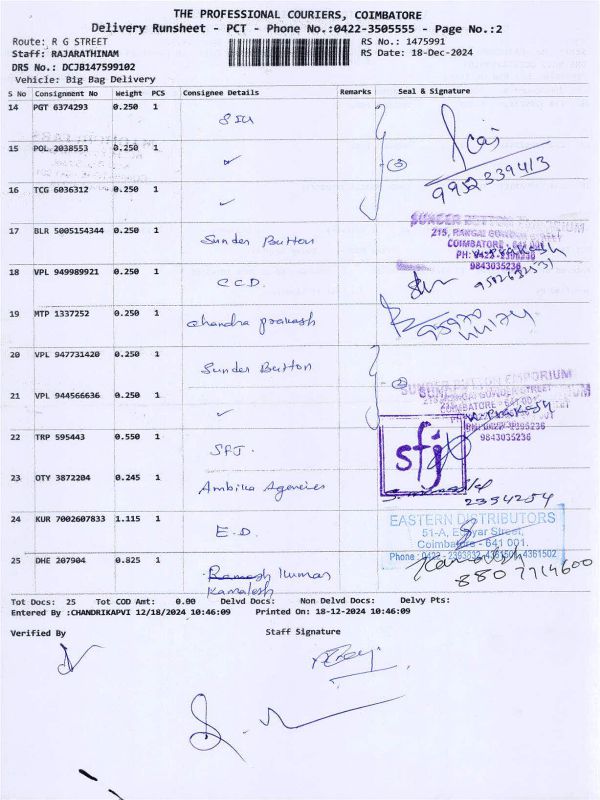 THE PROFESSIONAL COURIERS, COIMBATORE
Delivery Runsheet - PCT - Phone No.:0422-3505555 - Page No.:2
Route: R G STREET
RS No.: 1475991
Staff: RAJARATHINAM
RS Date: 18-Dec-2024
DRS No.: DCJB147599102
Vehicle: Big Bag Delivery
S No Consignment No Weight PCS Consignee Details Remarks Seal & Signature
14 PGT 6374293 0.250 1
15 POL 2038553 0.250 1 ✓
③
9952339413
16 TCG 6036312 0.250 1 ✓
SUNDER BUTTON EMPORIUM
17 BLR 5005154344 0.250 1 Sunder Button
215, RANGAI GOWDER STREET
COIMBATORE - 641 001
PH: 0422-2395236
9843035236
18 VPL 949989921 0.250 1 C.C.D.
19 MTP 1337252 0.250 1 Chandra prakash
20 VPL 947731420 0.250 1 Sunder Button
②
SUNDER BUTTON EMPORIUM
21 VPL 944566636 0.250 1 ✓
COIMBATORE - 641 001
PH: 0422-2395236
9843035236
22 TRP 595443 0.550 1 SFJ.
sfj
23 OTY 3872204 0.245 1 Ambika Agencies
2394254
24 KUR 7002607833 1.115 1 E.D.
EASTERN DISTRIBUTORS
Coimbatore - 641 001.
25 DHE 207904 0.825 1 Ramesh Kumar
Kamalesh
880 7714600
Tot Docs: 25 Tot COD Amt: 0.00 Delvd Docs: Non Delvd Docs: Delvy Pts:
Entered By :CHANDRIKAPVI 12/18/2024 10:46:09 Printed On: 18-12-2024 10:46:09
Verified By Staff Signature